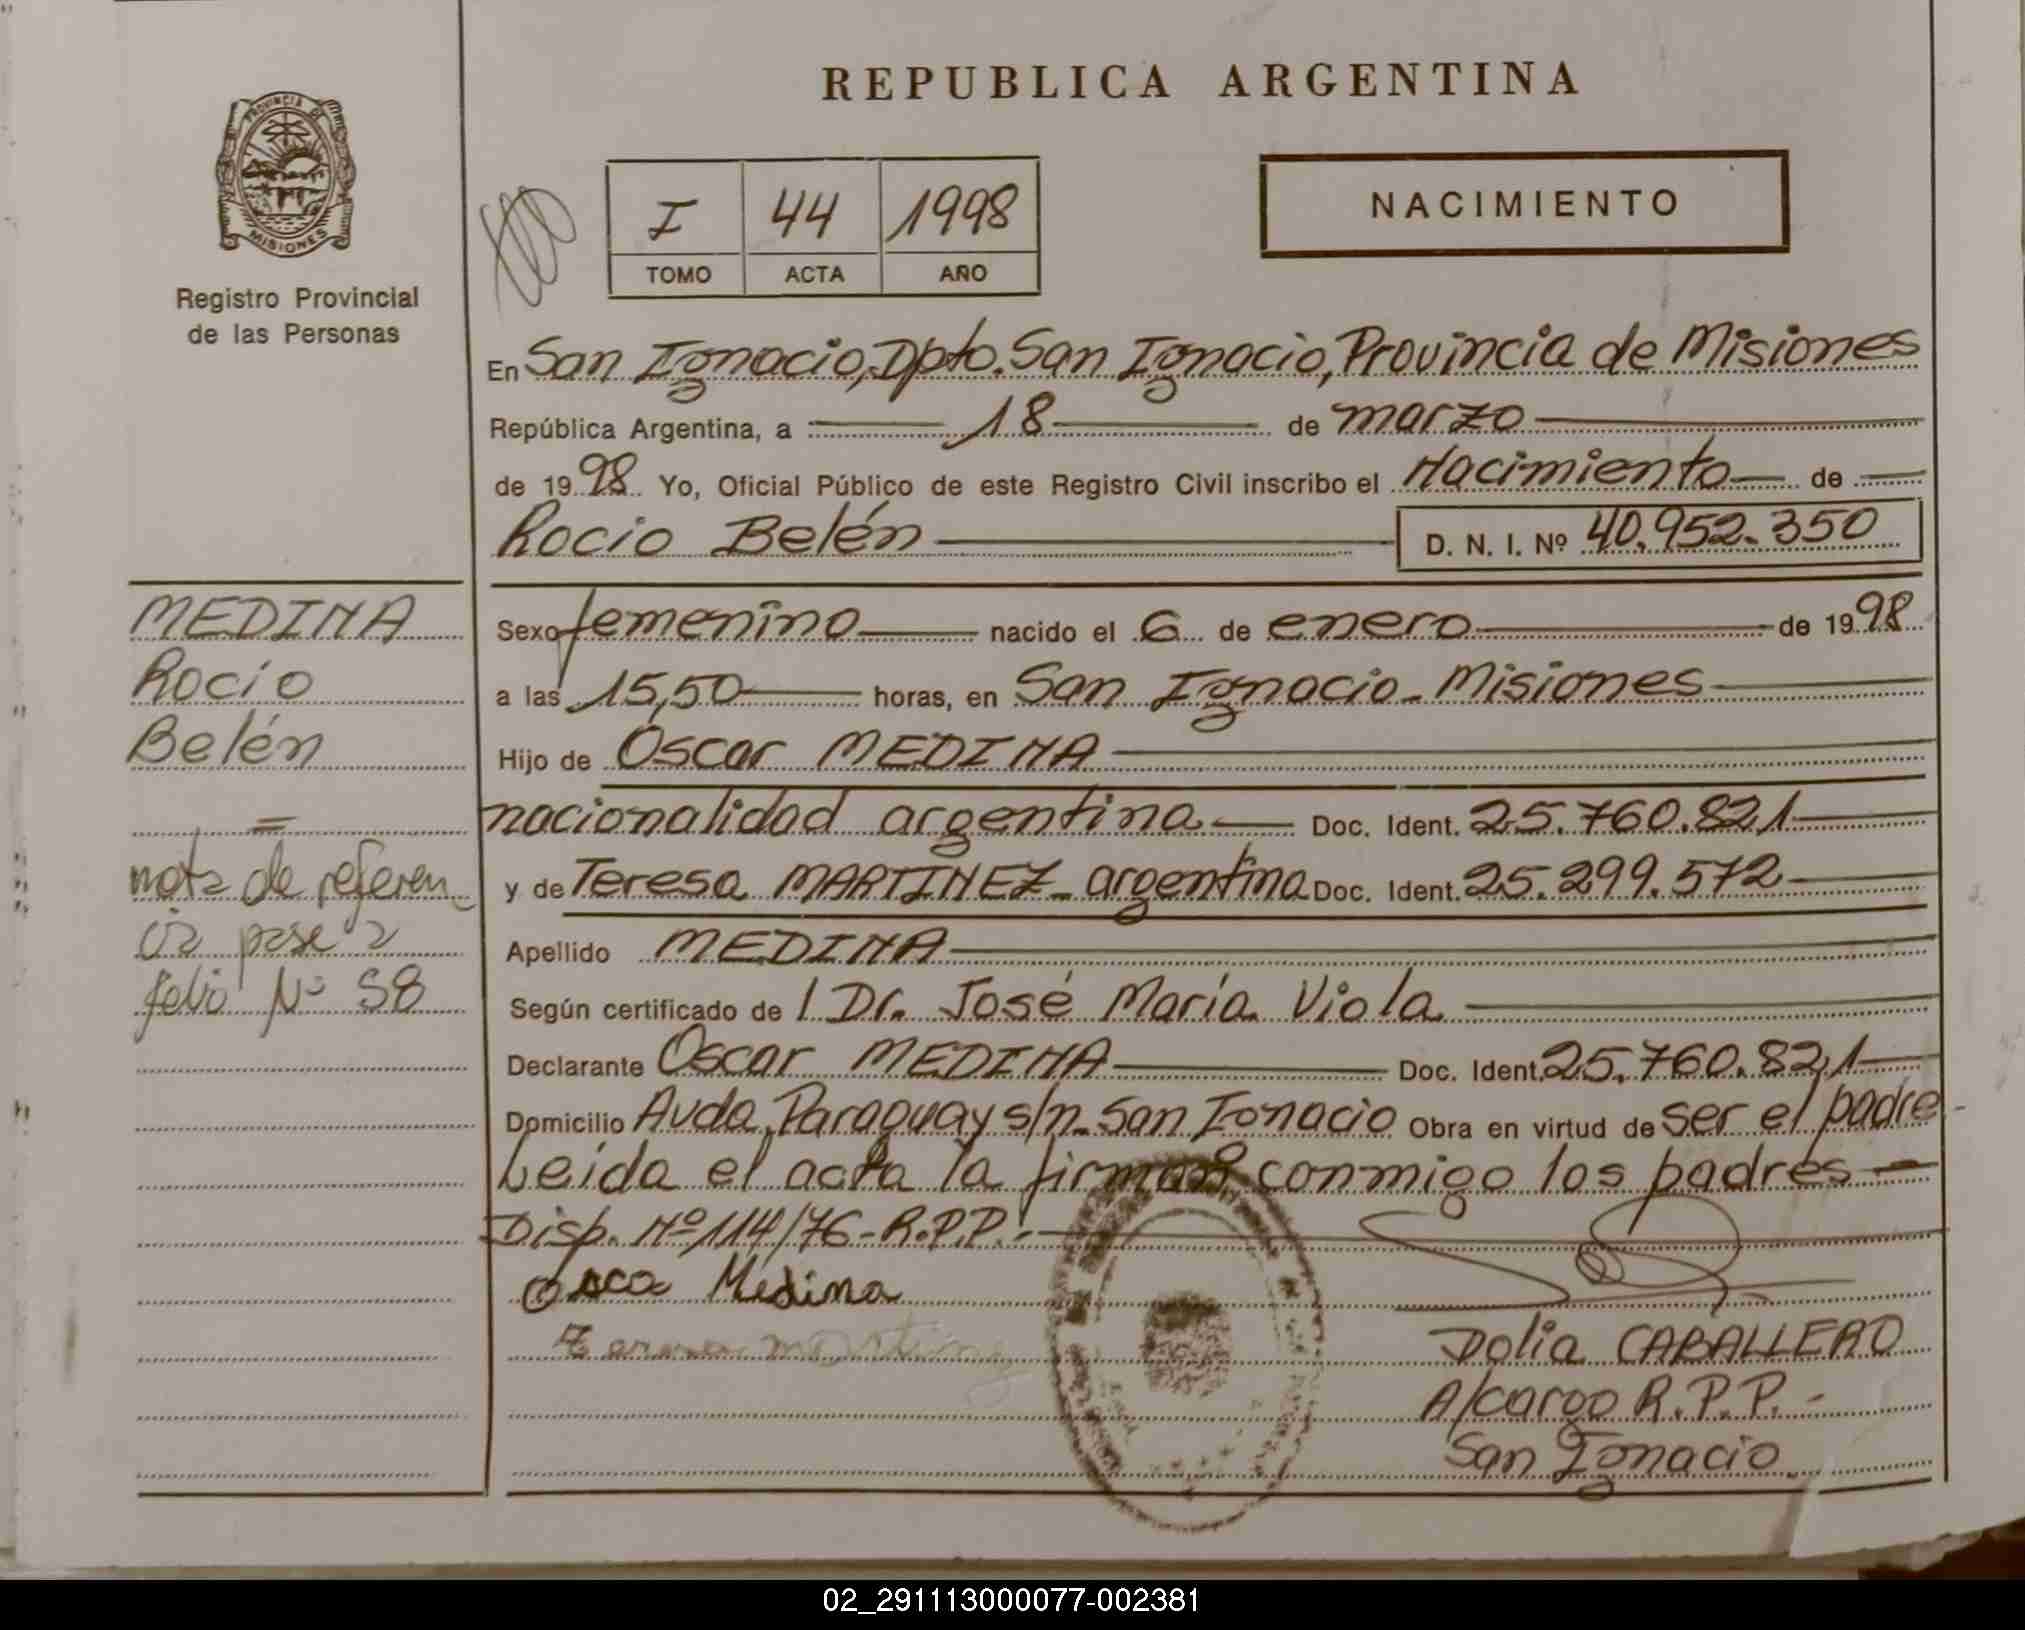 REPUBLICA ARGENTINA
PROVINCIA DE
MISIONES
Registro Provincial
de las Personas
I 44 1998
TOMO ACTA AÑO
NACIMIENTO
En San Ignacio, Dpto. San Ignacio, Provincia de Misiones
República Argentina, a 18 de marzo
de 1998 Yo, Oficial Público de este Registro Civil inscribo el Nacimiento de
Rocio Belén D. N. I. Nº 40.952.350
MEDINA
Rocio
Belén
nota de referen
cia pase a
folio Nº 58
Sexo femenino nacido el 6 de enero de 1998
a las 15,50 horas, en San Ignacio - Misiones
Hijo de Oscar MEDINA
nacionalidad argentina Doc. Ident. 25.760.821
y de Teresa MARTINEZ - argentina Doc. Ident. 25.299.572
Apellido MEDINA
Según certificado de l Dr. José María Viola
Declarante Oscar MEDINA Doc. Ident. 25.760.821
Domicilio Avda. Paraguay s/n. San Ignacio Obra en virtud de ser el padre-
Leída el acta la firman conmigo los padres
Disp. Nº 114/76-R.P.P.-
Osca Medina
Dolia CABALLERO
A/cargo R.P.P.-
San Ignacio
02_291113000077-002381